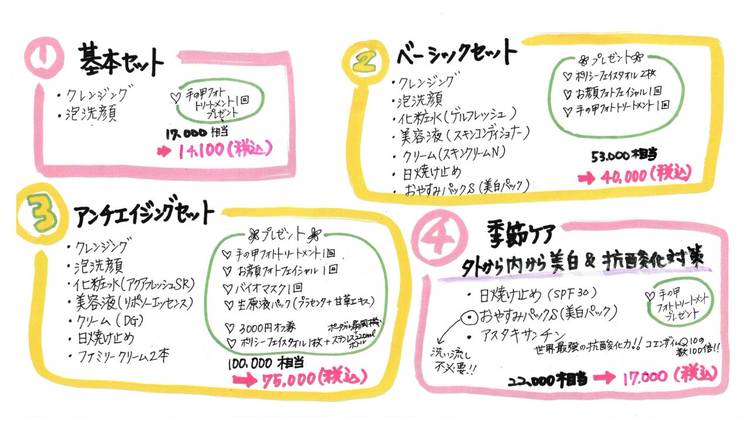 1 基本セット
・クレンジング
・泡洗顔
♡ 手の甲フォト
トリートメント1回
プレゼント
17.000 相当
➡ 14,100(税込)
2 ベーシックセット
・クレンジング
・泡洗顔
・化粧水(ゲルフレッシュ)
・美容液(スキンコンディショナー)
・クリーム(スキンクリームN)
・日焼け止め
・おやすみパックS(美白パック)
プレゼント
♡ ポリシーフェイスタオル2枚
♡ お顔フォトフェイシャル1回
♡ 手の甲フォトトリートメント1回
53.000相当
➡ 40,000(税込)
3 アンチエイジングセット
・クレンジング
・泡洗顔
・化粧水(アクアフレッシュSR)
・美容液(リポソーエッセンス)
・クリーム(DG)
・日焼け止め
・ファミリークリーム2本
プレゼント
♡ 手の甲フォトトリートメント1回
♡ お顔フォトフェイシャル1回
♡ バイオマスク1回
♡ 生原液パック(プラセンタ+甘草エキス)
♡ 3000円オフ券
♡ ポリシーフェイスタオル1枚+ステンレス
ボトル
100,000相当
➡ 75,000(税込)
4 季節ケア
外から内から美白&抗酸化対策
・日焼け止め(SPF30)
・おやすみパックS(美白パック)
・アスタキサンチン
洗い流し
不必要!!
世界最強の抗酸化力!! コエンザイムQ10の
約100倍!!
♡ 手の甲
フォトトリートメント
プレゼント
22,000相当 ➡ 17.000(税込)